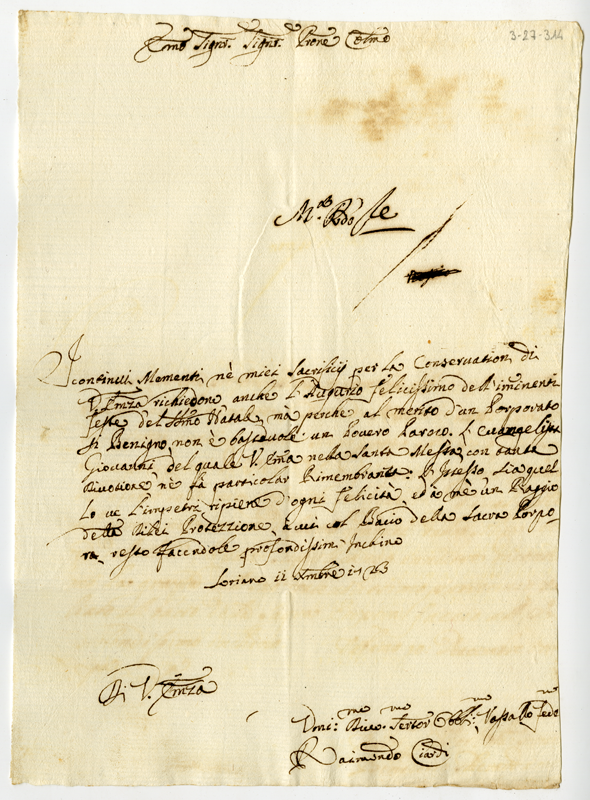 3-27-314
Emo Signr. Signr. Prone Colmo
I continui Mementi nè miei Sacrificij per la Conservation di
V. Emza richiedono anche l'Augurio felicissimo dell'iminenti
feste del SSmo Natale, mà perche al merito d'un Porporato
sì Benigno non è bastevole un Povero Paroco. L'Evangelista
Giovanni, del quale V. Ema nella Santa Messa con tanta
Divotione nè fà particolar Rimembranza. L'Istesso sia quel
lo ve l'impetri ripiene d'ogni felicità, et a mè un Raggio
delle Protezzione, à cui col Bacio della Sacra Porpo
ra, resto facendole profondissim Inchino
Loriano 11 Xmbre 1723
Di V. Emza
Dmi: Divo: Servor Obbl: Vassallo fede
mo mo mo mo
Raimondo Ciardi